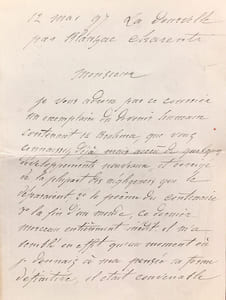 12 mai 97 La
par Blanzac Charente
Monsieur
je vous adresse par ce courrier
un exemplaire du devenir humain
contenant le Brahma, que vous
connaissez déjà mais accru de quelques
développements nouveaux, et corrigé
de la plupart des négligences qui le
déparaient, et le poème du centenaire
et la fin d'un monde, ce dernier
morceau entièrement inédit. Il m'a
semblé en effet qu'au moment où
je donnais à ma pensée sa forme
définitive, il était convenable